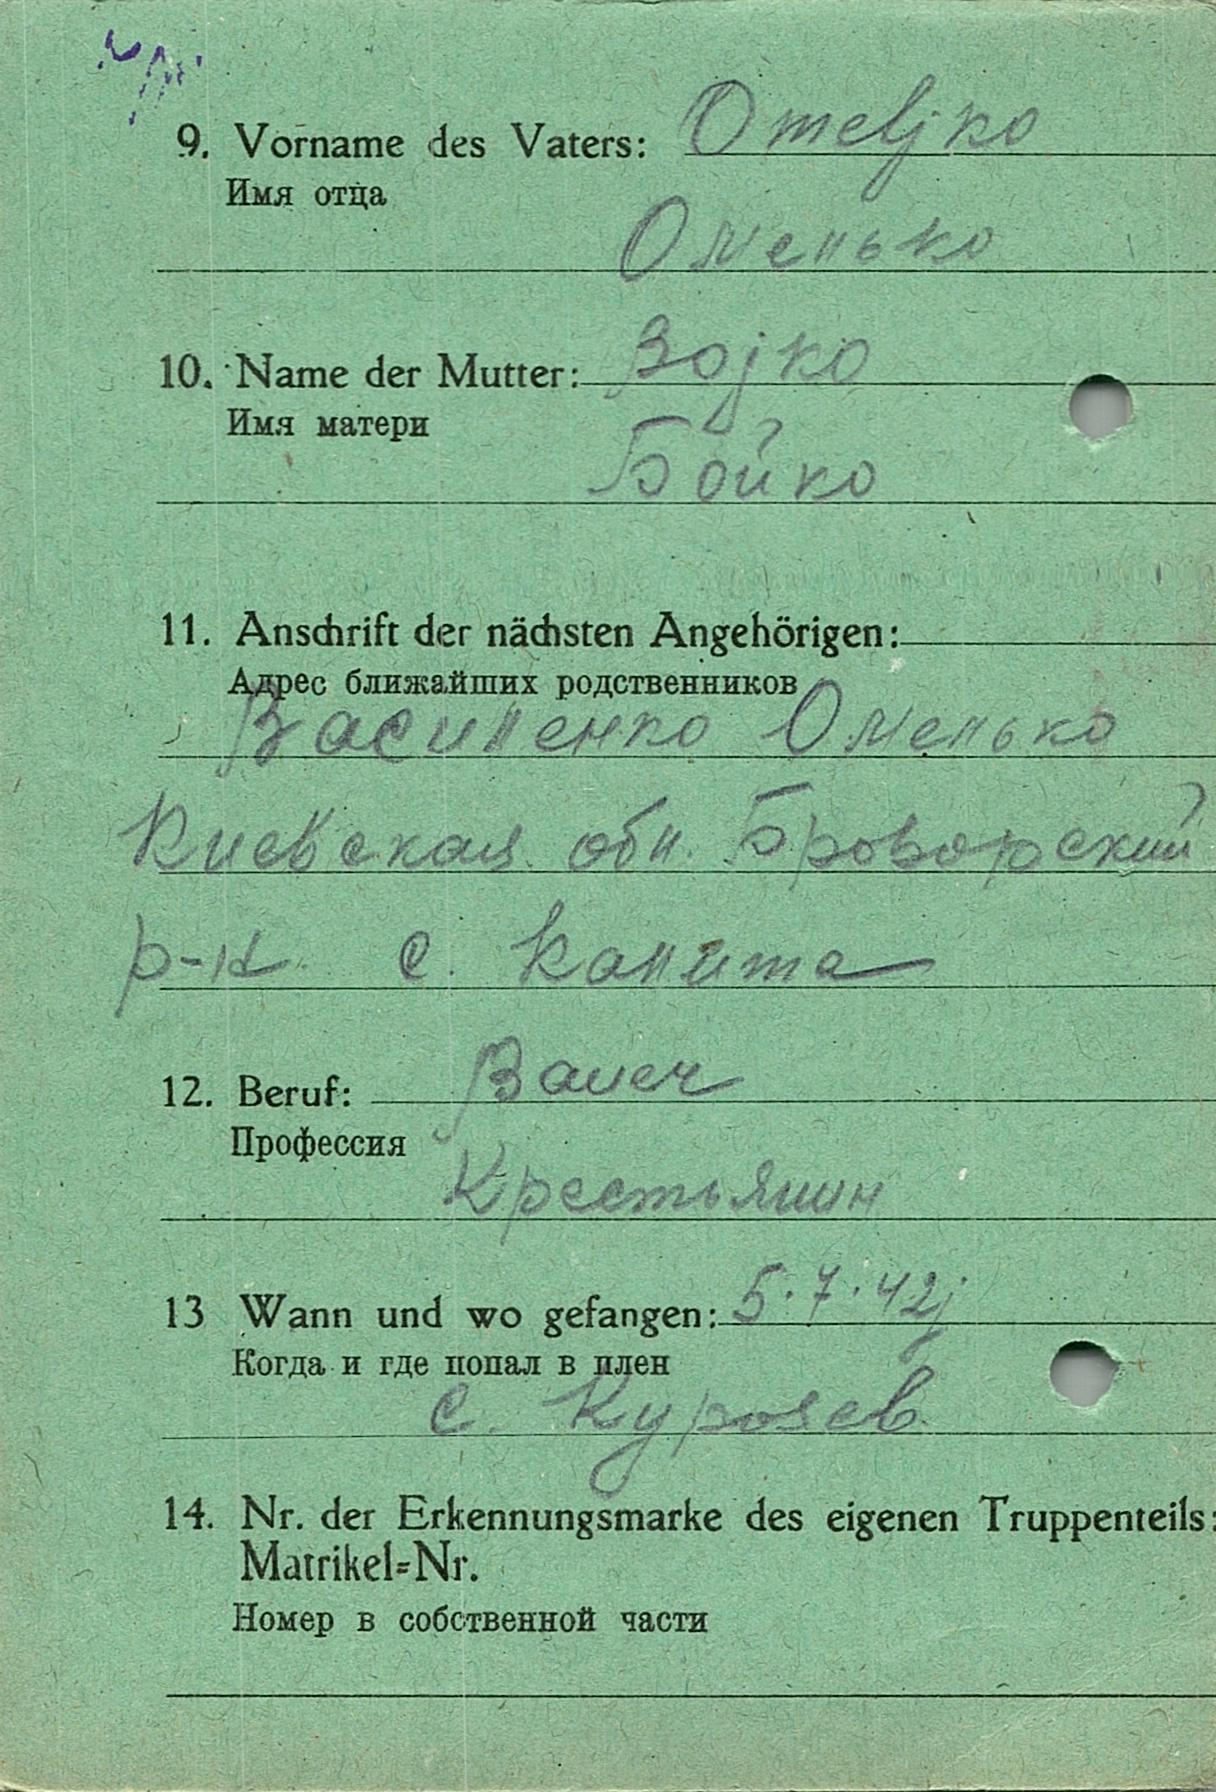 9. Vorname des Vaters: Omeljko
Имя отца
Омелько
10. Name der Mutter: Bojko
Имя матери
Бойко
11. Anschrift der nächsten Angehörigen:
Адрес ближайших родственников
Василенко Омелько
Киевская обл. Броворский
р-н с. Калита
12. Beruf: Bauer
Профессия
Крестьянин
13 Wann und wo gefangen: 5.7.42j
Когда и где попал в плен
с.
14. Nr. der Erkennungsmarke des eigenen Truppenteils:
Matrikel=Nr.
Номер в собственной части